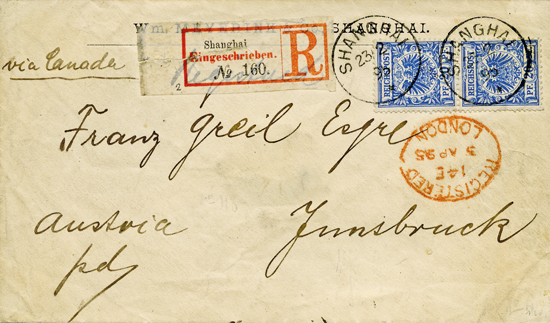 Wm. MEYERINK & SHANGHAI.
via Canada
Shanghai
Eingeschrieben.
№ 160.
R
2
SHANGHAI
23 2
95
REICHSPOST
SHANGHAI
2
95
REICHSPOST
REGISTERED
14 E
3 AP 95
LONDON
Franz Greil Esqre
Austria
Innsbruck
pd